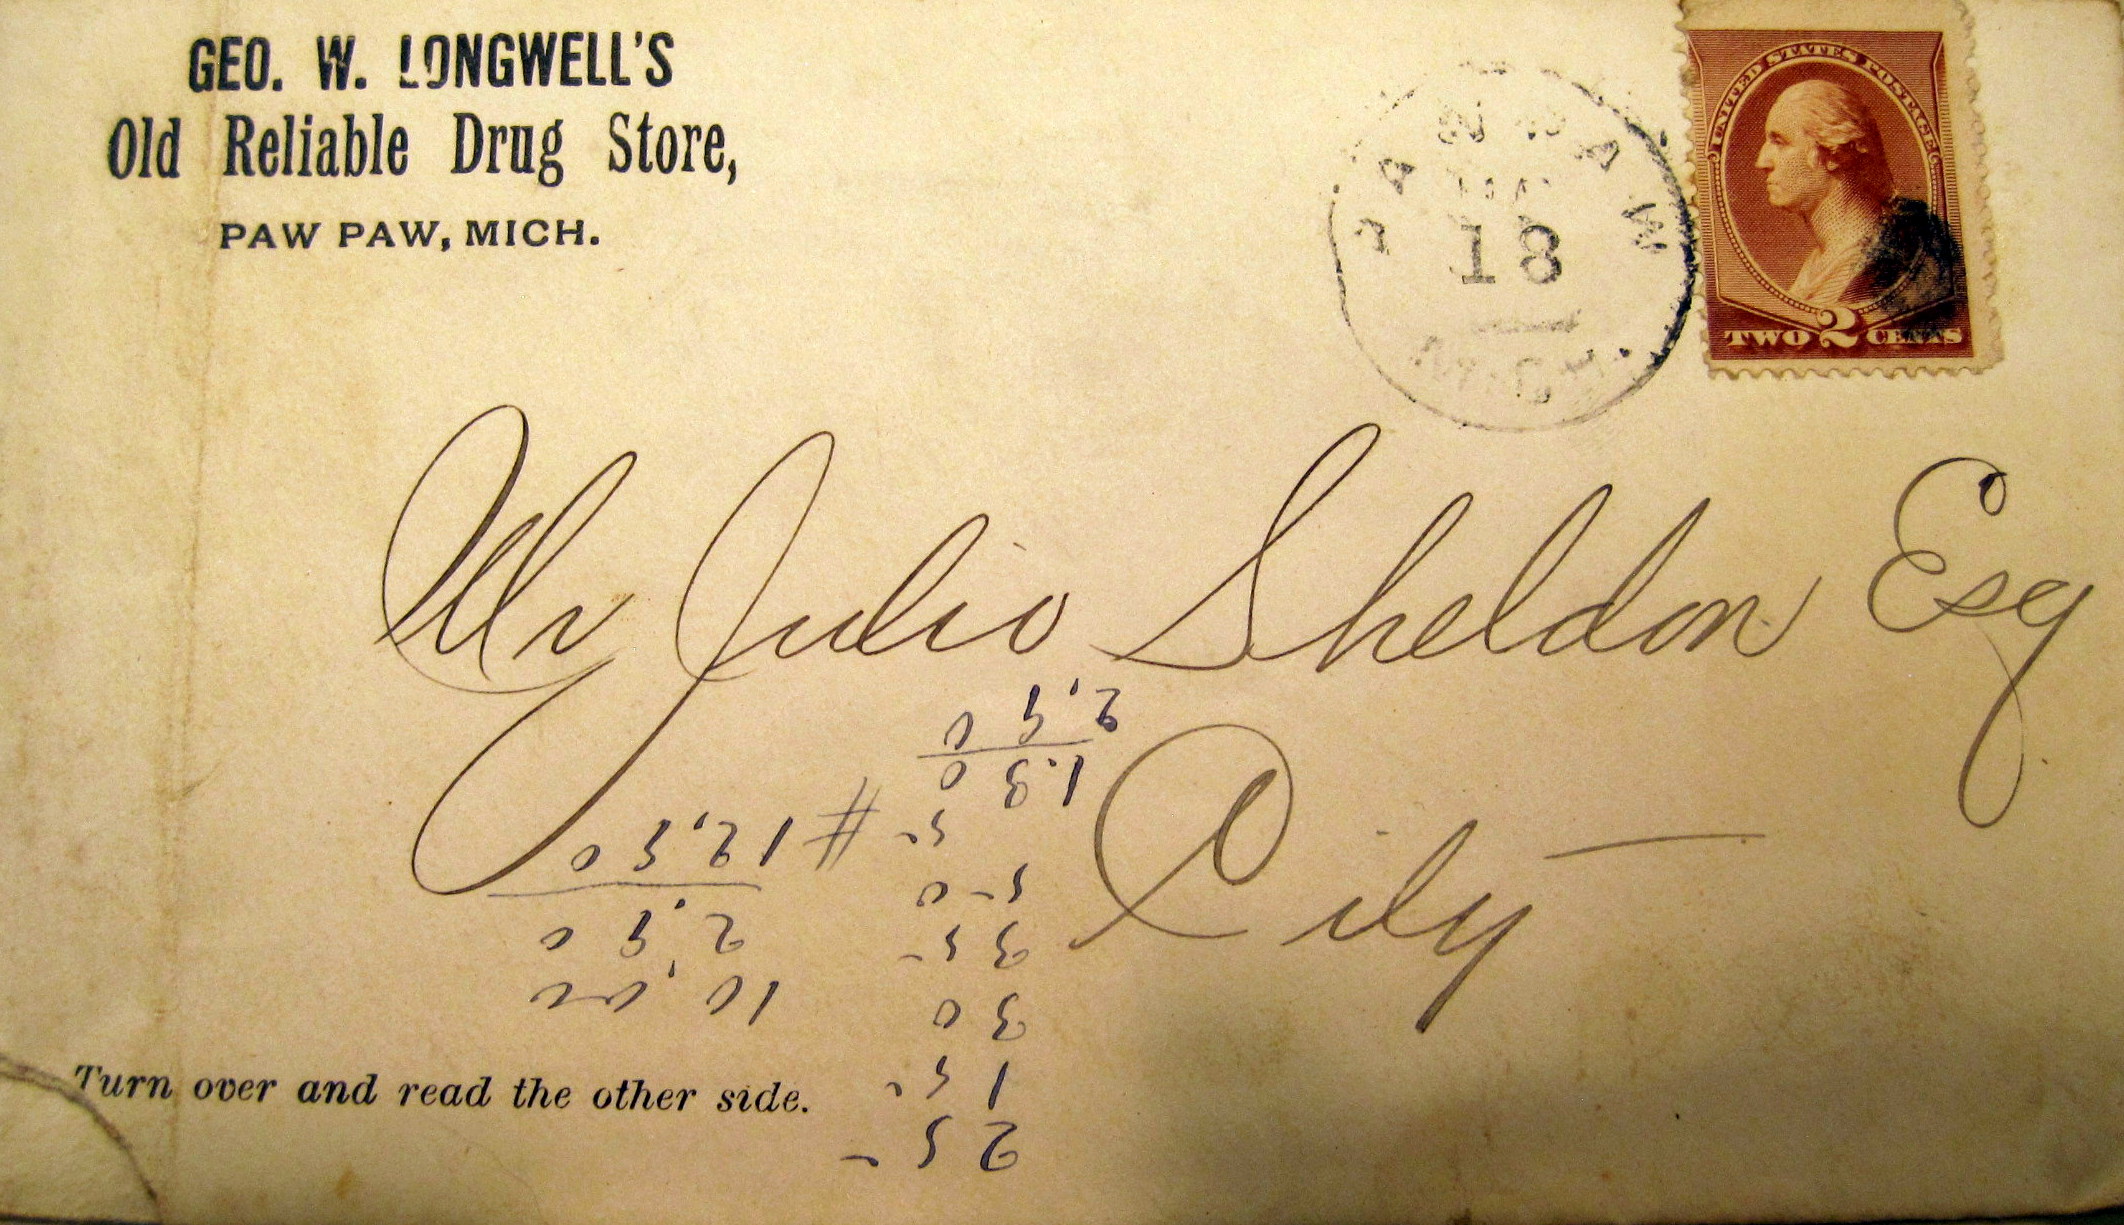 GEO. W. LONGWELL'S
Old Reliable Drug Store,
PAW PAW, MICH.
PAW PAW
18
MICH.
UNITED STATES POSTAGE
TWO 2 CENTS
Mr Julio Sheldon Esq
City
Turn over and read the other side.
25
15
30
35
50
5
1.30
2.50
10,00
2,50
#12,50